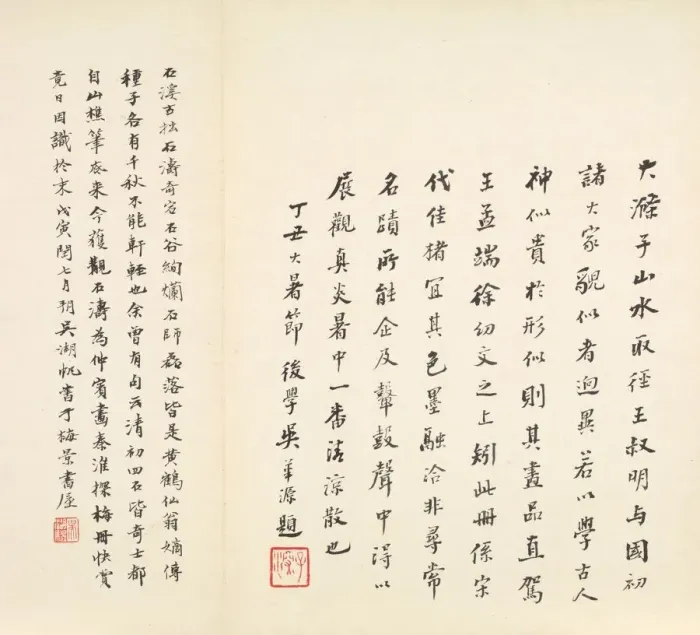 大滌子山水取徑王叔明与國初
諸大家貌似者迥異若以學古人
神似貴於形似則其畫品直駕
王孟端徐幼文之上矧此冊係宋
代佳楮冝其色墨融洽非尋常
名蹟所能企及鼙鼓聲中得以
展觀真炎暑中一番清涼散也
丁丑大暑節後學吳華源題
子深
石溪古拙石濤奇宕石谷絢爛石師磊落皆是黃鶴仙翁嫡傳
種子各有千秋不能軒輊也余曾有句云清初四石皆奇士都
自山樵筆底来今獲觀石濤為仲賓畫秦淮探梅冊快賞
竟日因識於末戊寅閏七月朔吳湖帆書于梅景書屋